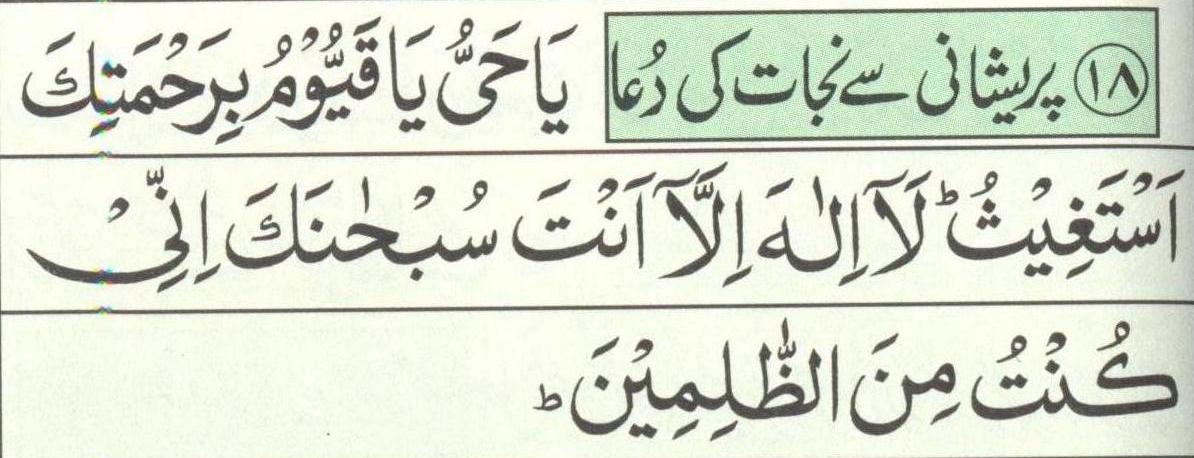 ۱۸ پریشانی سے نجات کی دُعا یَا حَیُّ یَا قَیُّوْمُ بِرَحْمَتِكَ
اَسْتَغِیْثُ ؕ لَاۤ اِلٰهَ اِلَّاۤ اَنْتَ سُبْحٰنَكَ اِنِّیْ
كُنْتُ مِنَ الظّٰلِمِیْنَ ؕ